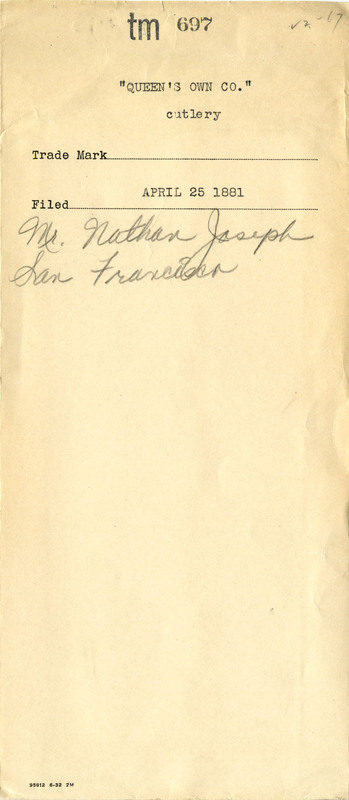 tm 697
"QUEEN'S OWN CO."
cutlery
Trade Mark
APRIL 25 1881
Filed
Mr. Nathan Joseph
San Francisco
95812 6-33 2M